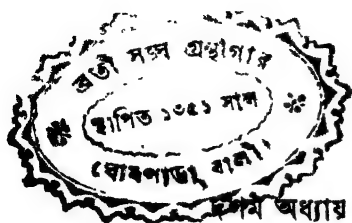 ব্রতী সংঘ গ্রন্থাগার
স্থাপিত ১৩৫১ সাল
ঘোষপাড়া, বালী।
দশম অধ্যায়